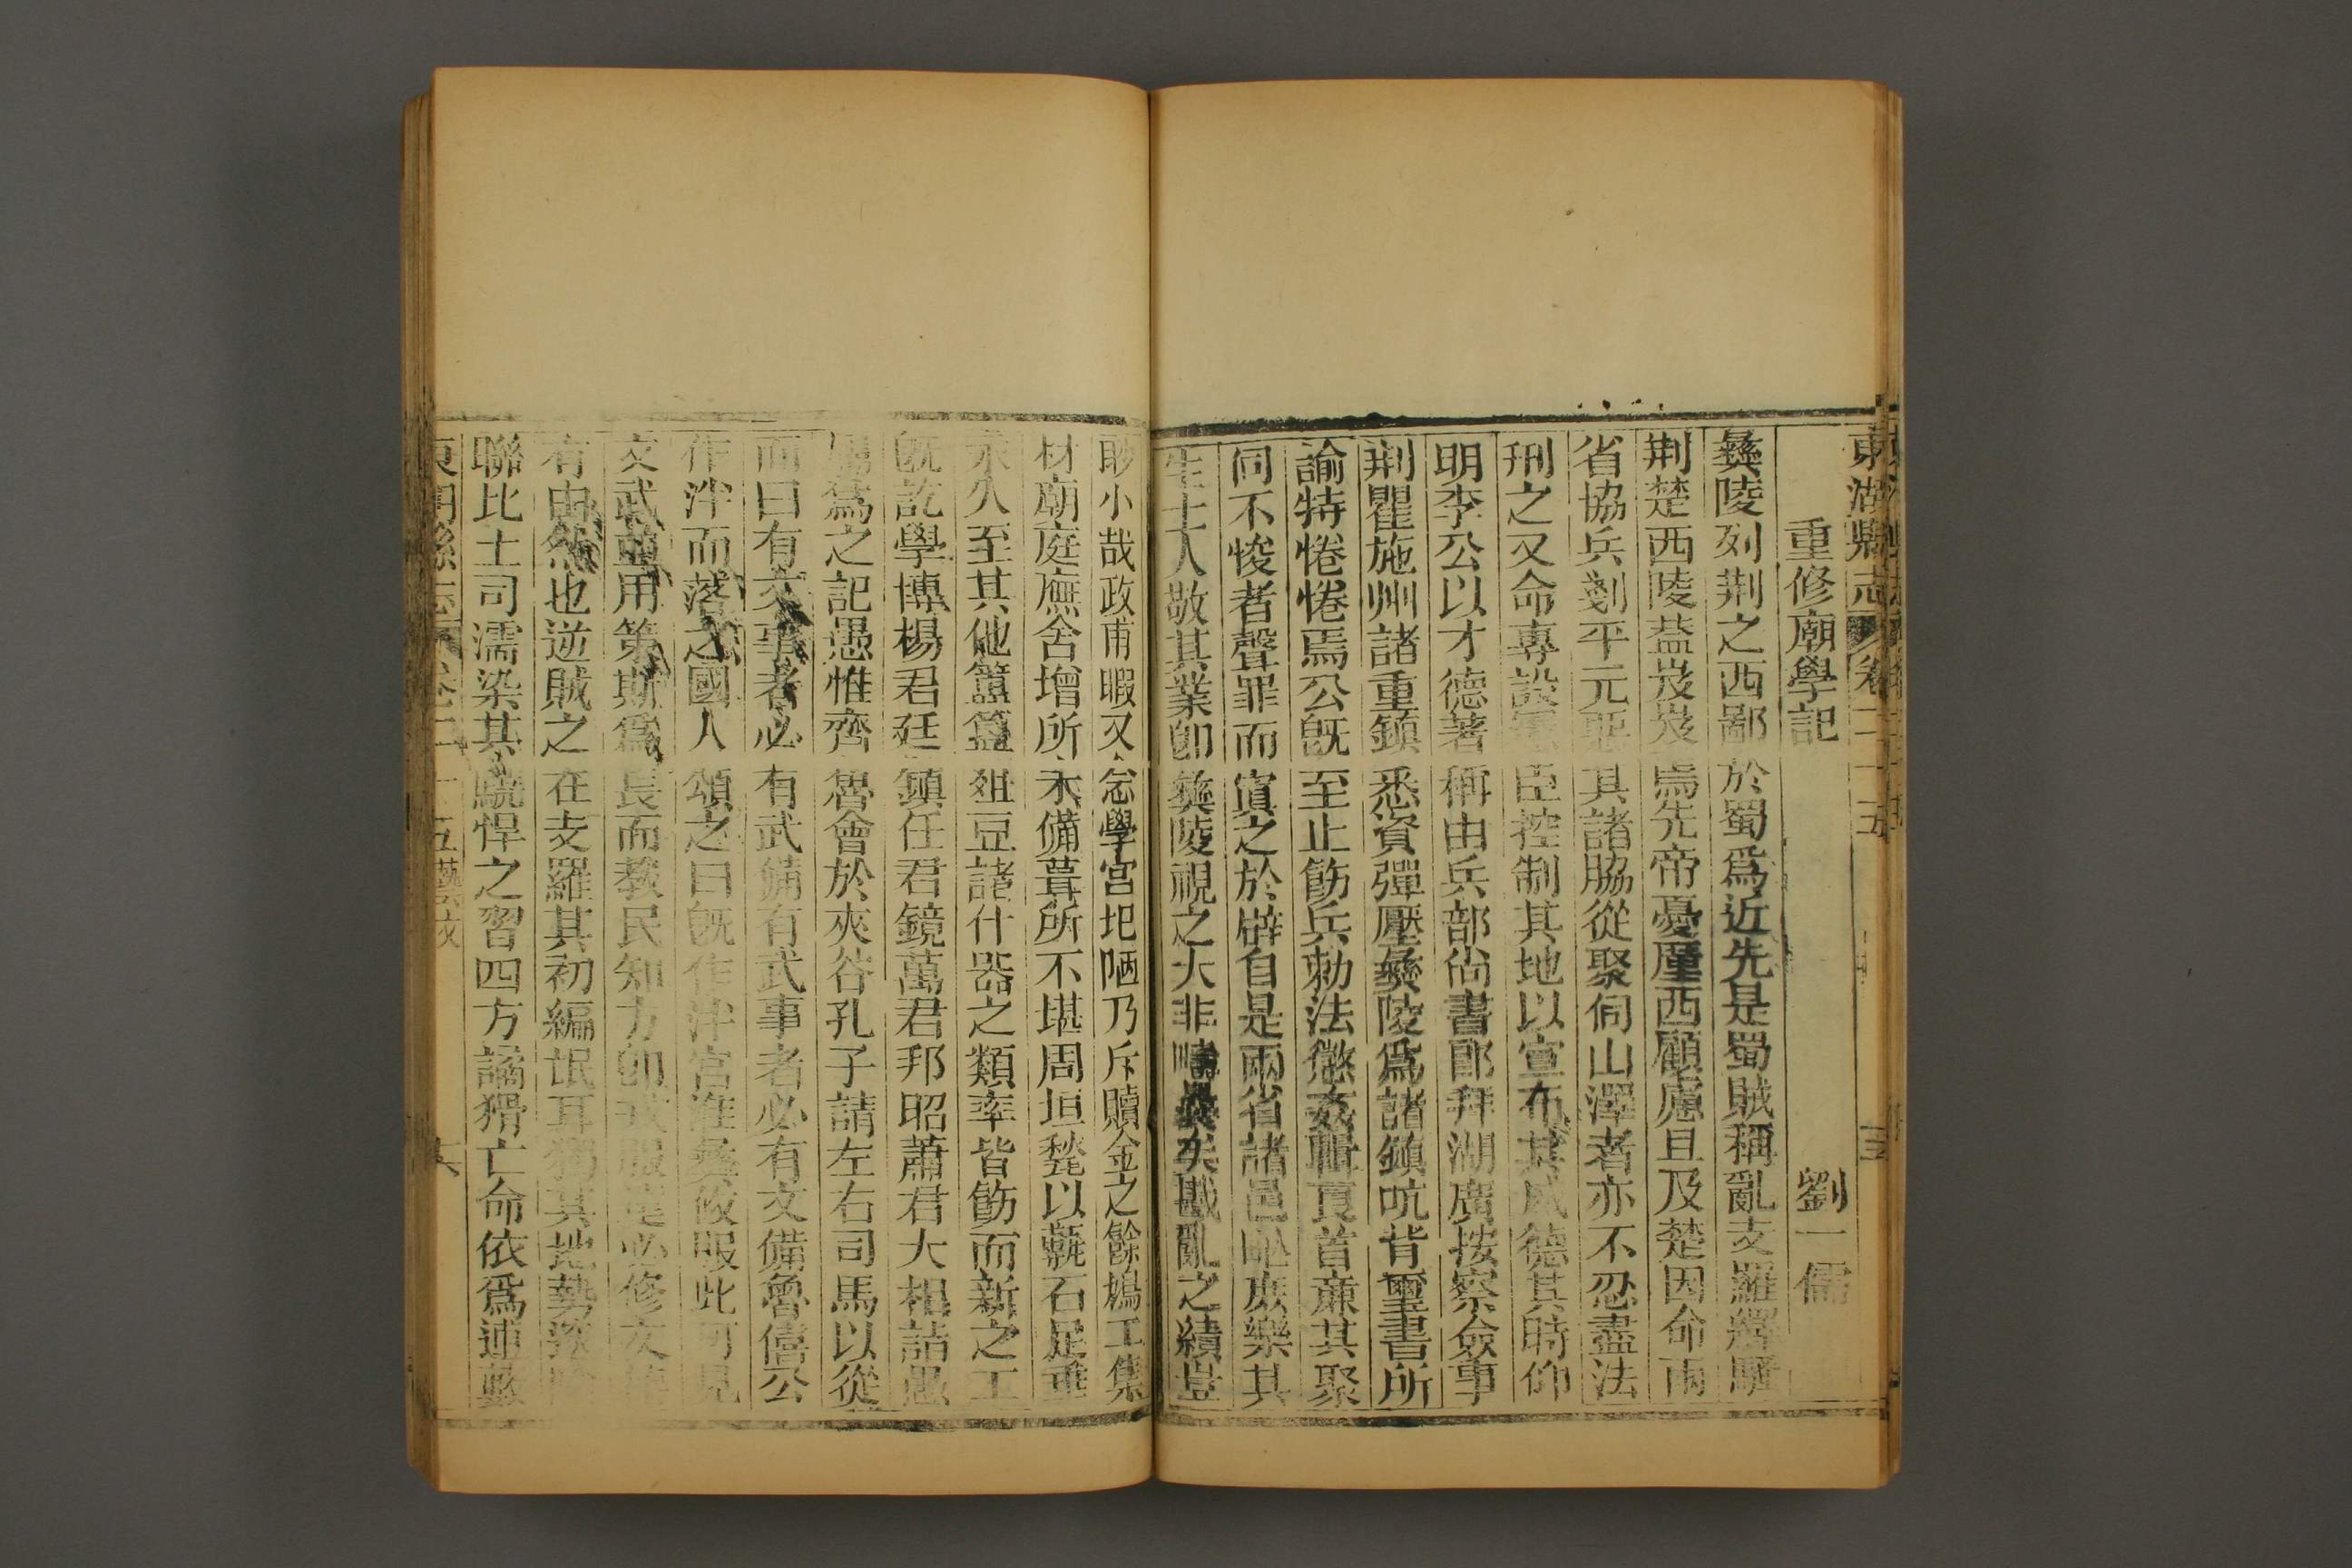 東湖縣志 卷二十五
重修廟學記 劉一儒
彝陵列荆之西鄙於蜀爲近先是蜀賊稱亂支羅繹騷
荆楚西陵葢岌岌焉先帝憂厪西顧慮且及楚因命兩
省協兵剗平元惡其諸脇從聚伺山澤者亦不忍盡法
刑之又命專設憲臣控制其地以宣布其威德其時仰
明李公以才德著稱由兵部尚書郎拜湖廣按察僉事
荆瞿施州諸重鎮悉資彈壓彝陵爲諸鎮吭背璽書所
諭特惓惓焉公旣至止飭兵勅法懲姦輯良首亷其聚
同不悛者聲罪而寘之於辟自是兩省諸邑甿庶樂其
生士人敬其業卽彝陵視之大非疇曩矣戡亂之績豈
眇小哉政甫暇又念學宮圮陋乃斥贖金之餘鳩工集
材廟庭廡舍增所未備葺所不堪周垣甃以蘢石足垂
永久至其他簠簋俎豆諸什器之類率皆飭而新之工
旣訖學博楊君廷鎮任君鏡萬君邦昭蕭君大相詣愚
屬爲之記愚惟齊魯會於夾谷孔子請左右司馬以從
而曰有文事者必有武備有武事者必有文備魯僖公
作泮而落之國人頌之曰旣作泮宮淮彝攸服此可見
文武並用第斯爲長而教民知方卽戎服遠必修文德
有由然也逆賊之在支羅其初編氓耳獨其地勢
聯比土司濡染其驍悍之習四方譎猾亡命依爲逋藪
東湖縣志 卷二十五 藝文 六